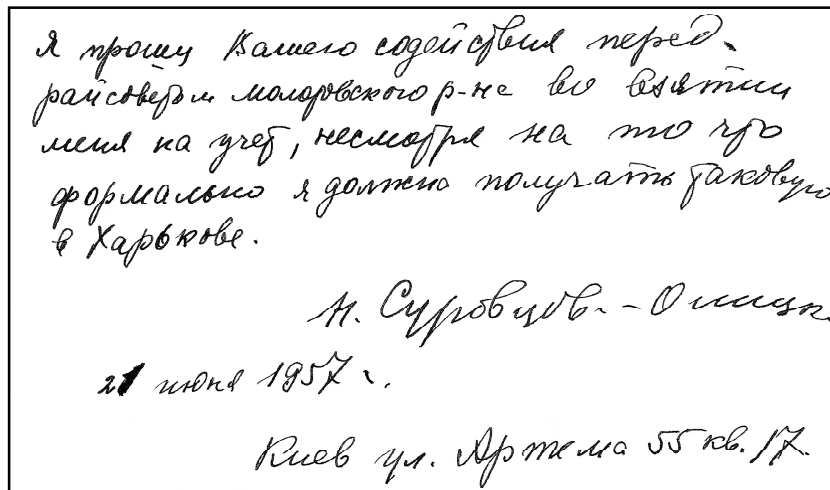 Я прошу Вашего содействия перед
райсоветом молотовского р-на во взятии
меня на учет, несмотря на то что
формально я должна получать таковую
в Харькове.
Н. Суровцов.-Олицк
21 июня 1957 г.
Киев ул. Артема 55 кв. 17.